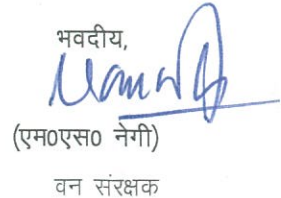 भवदीय,
(एम०एस० नेगी)
वन संरक्षक